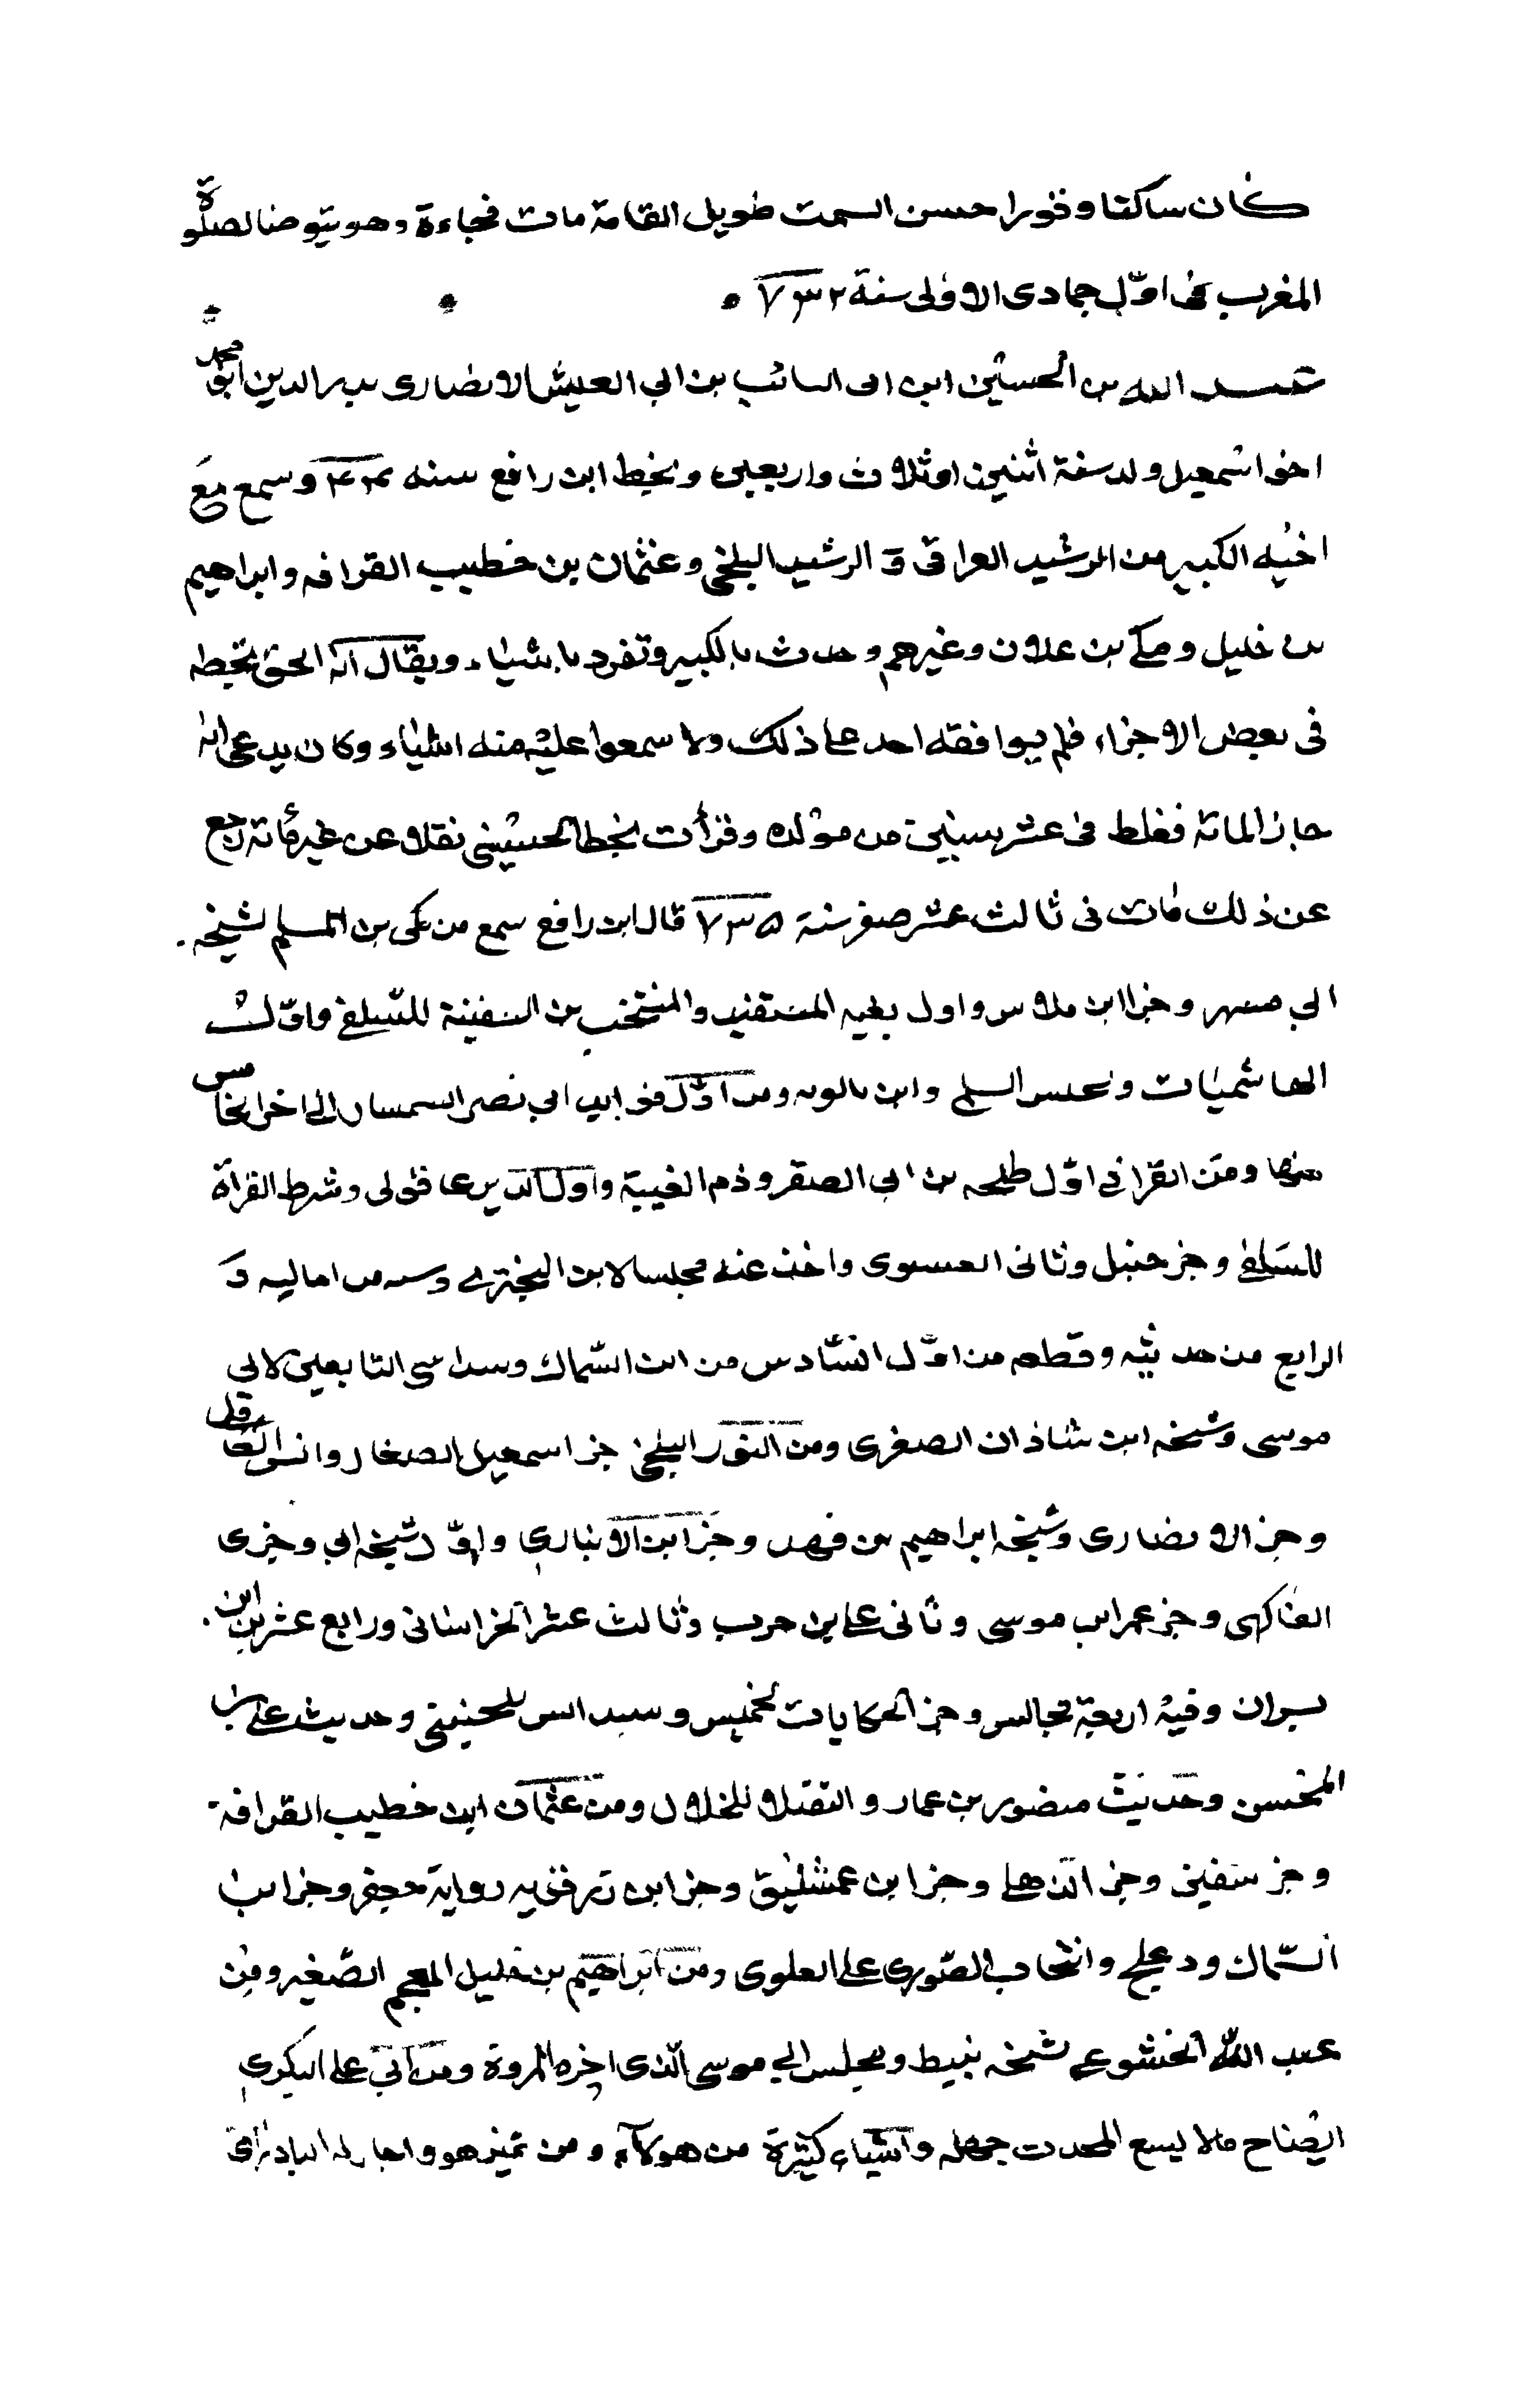 كان ساكتا وقورا حسن السمت طويل القامة مات فجاءة وهو يتوضا لصلوة
المغرب فى اوّل جمادى الاولى سنة ٧٣٢
عبد الله بن الحسين ابن ابى السائب بن ابي العيش الانصارى بدر الدين ابو محمد
اخو اسمعيل ولد سنة اثنين او ثلاث واربعين وبخط ابن رافع سنه وسمع مع
اخيه الكبير من الرشيد العراقى و الرشيد البلخى وعثمان بن خطيب القرافه وابراهيم
بن خليل ومكى بن علان وغيرهم وحدث بالكبير وتفرد باشياء ويقال انه الحق بخطه
فى بعض الاجزاء فلم يوافقه احد على ذلك ولا سمعوا عليه منه اشياء وكان يدعى انه
جاز المائة فغلط فى عشر سنين من مولده وقرأت بخط الحسينى نقلا عن غيره انه رجع
عن ذلك مات فى ثالث عشر صفر سنة ٧٣٥ قال ابن رافع سمع من مكى بن المسلم لشيخه
ابي مسهر وجزا ابن ملاس واول بغيه المستفيد والمنتخب من السفينة للسلفى واوّل
الهاشميات و السلمى وابن بالويه ومن اوّل فوايد ابي نصر الى اخر الخامس
منها ومن القرانى اوّل طلحه بن ابي الصقر وذم الغيبة واول وشرط القرأة
للسلفى وجز حنبل وثانى العيسوى واخذ عنه مجلسا لابن البخترى من اماليه و
الرابع من حديثه وقطعه من اوّل السّادس من ابن السّماك وسداسى التابعين لابي
موسى وشيخه ابن شاذان الصغرى ومن النور البلخى جز اسمعيل الصفار وانس العاقل
وجز الانصارى وشيخه ابراهيم بن فهد وجز ابن الانبارى واوّل شيخه ابي وجزى
الفاكهى وجز عمر ابن موسى وثانى على بن حرب وثالث عشر الخراسانى ورابع عشر ابن
بشران وفيه اربعة مجالس وجز الحكايات لخميس وسيد انس للحنينى وحديث على بن
المحسن وحديث منصور بن عمار و للخلال ومن عثمان ابن خطيب القرافة
وجز سفين وجز الذهلى وجز ابن عمشليق وجز ابن زرقويه رواية جعفر وجز ابن
السّماك ودعلج وانتخاب الصّورى على العلوى ومن ابراهيم بن خليل المعجم الصّغير ومن
عبد الله الخشوعى شيخه نبيط ومجلس ابي موسى الّذى اخره المروة ومن ابى على البكرى
ايضاح مالا يسع المحدث جهله واشياء كثيرة من هولاء ومن غيرهم واجاز له